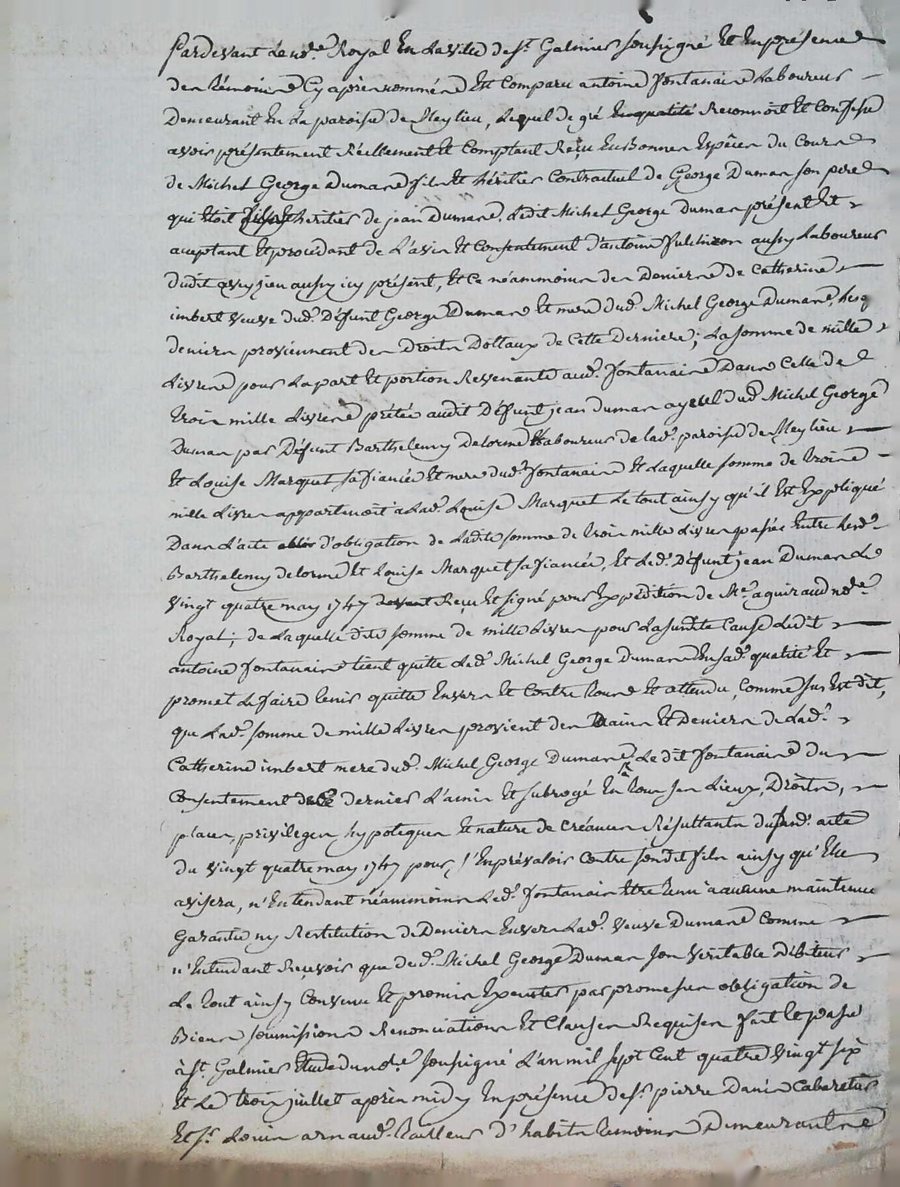 Pardevant Le no.re Royal En La ville de st. Galmier soussigné Et En présence
des témoins Cy après nommés Est Comparu antoine fontanaire Laboureur
Demeurant En La paroisse de Meylieu, Lequel de gré Reconnoit Et Confesse
avoir présentement Réellement Et Comptant Reçu En Bonnes Espèces du Cours
de Michel George Dumas fils Et héritier Contractuel de George Dumas son pere
qui Etoit fils Et heritier de jean Dumas. Ledit Michel George Dumas présent Et
acceptant Et procédant de L'avis Et Consentement d'antoine aussy Laboureur
dudit aussy icy présent, Et Ce néammoins des Deniers de Catherine
imbert veuve dud. Défunt George Dumas Et mere dud. Michel George Dumas, lesq
deniers proviennent des Droits Dottaux de Cette Derniere; La somme de mille
Livres pour La part Et portion Revenante aud. fontanaire Dans Celle de
trois mille Livres prêtée audit Défunt jean dumas ayeul dud. Michel George
Dumas par Défunt Barthelemy Delorme Laboureur de lad. paroisse de Meylieu
Et Louise Marquet sa fiancée Et mere dud. fontanaire Et Laquelle somme de trois
mille Livres appartenoit a Lad. Louise Marquet Le tout ainsy qu'il Est Expliqué
Dans L'acte d'obligation de Ladite somme de trois mille Livres passés Entre lesd.
Barthelemy delorme Et Louise Marquet sa fiancée, Et Led. Défunt jean Dumas Le
vingt quatre may 1747 Reçu Et signé pour Expédition de Me. aguiraud no.re
Royal; de Laquelle dite somme de mille Livres pour La susdite Cause Ledit
antoine fontanaire tient quitte Led. Michel George Dumas En sad. qualité Et
promet Le faire tenir quitte Envers Et Contre tous Et attendu, Comme sus Est dit,
que Lad. somme de mille Livres provient des mains Et Deniers de Lad.
Catherine imbert mere dud. Michel George Dumas, Le dit fontanaire du
Consentement de Ce dernier L'a mis Et subrogé En tous ses Lieux, Droits,
places, privileges hypoteques Et nature de créances Résultants dususd. acte
du vingt quatre may 1747 pour s'En prévaloir Contre sondit fils ainsy qu'Elle
avisera, n'Entendant néammoins Led. fontanaire Etre tenu à aucune maintenue
Garantie ny Restitution de Deniers Envers Lad. veuve Dumas Comme
n'Entendant Reçevoir que dud. Michel George Dumas son véritable débiteur
Le tout ainsy Convenu Et promis Executer par promesses obligation de
Biens soumissions Renonciations Et Clauses Requises fait Et passé
à st. Galmier Etude du no.re soussigné L'an mil sept cent quatre vingt six
Et Le trois juillet après midy En présence de sr. pierre Danis Cabaretier
Et sr. Louis arnaud tailleur d'habits temoins Demeurants